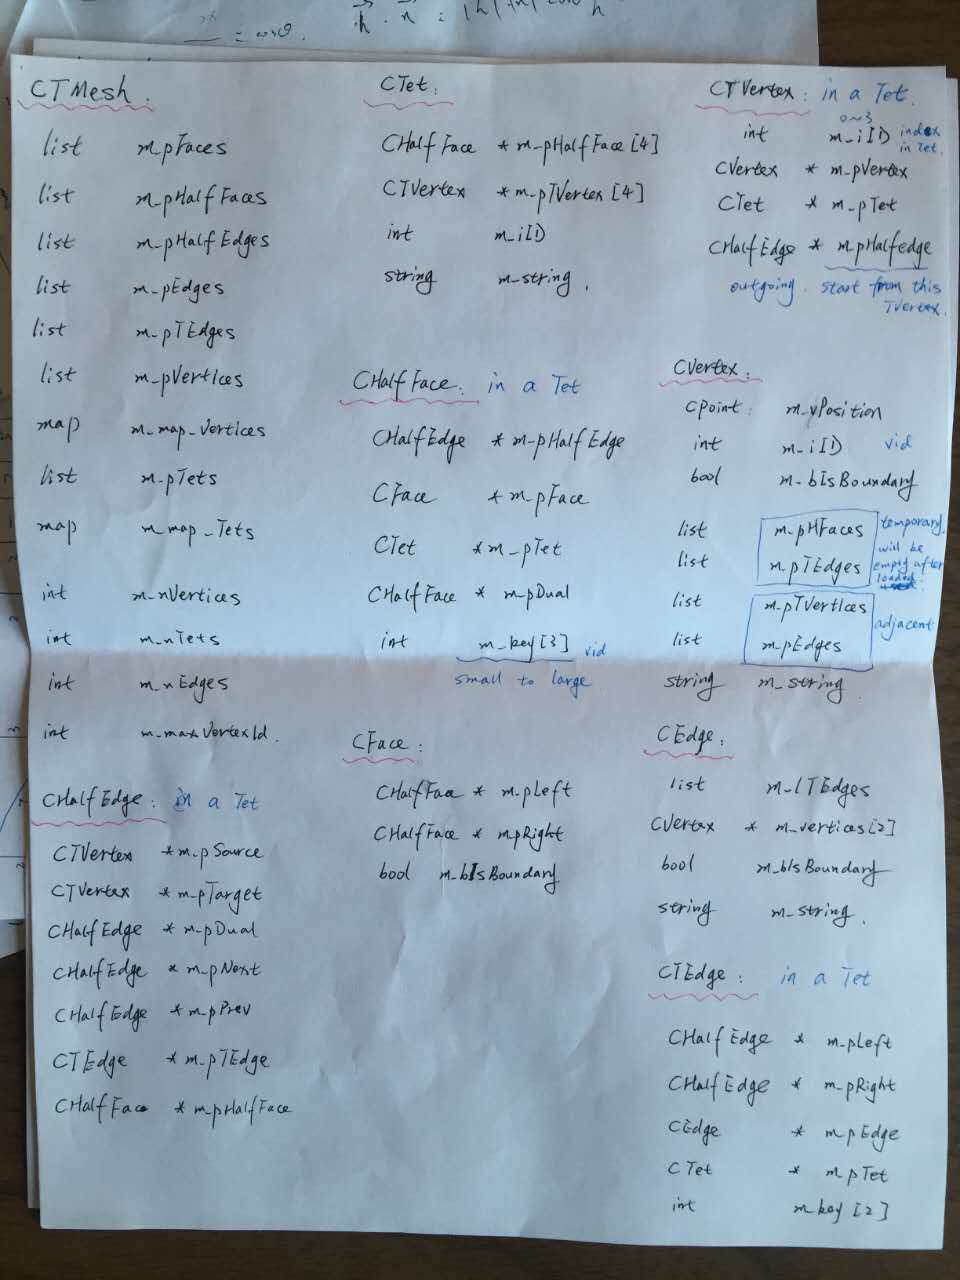 CTMesh:
list m_pFaces
list m_pHalfFaces
list m_pHalfEdges
list m_pEdges
list m_pTEdges
list m_pVertices
map m_map_Vertices
list m_pTets
map m_map_Tets
int m_nVertices
int m_nTets
int m_nEdges
int m_maxVertexId.
CHalfEdge: in a Tet
CTVertex *m_pSource
CTVertex *m_pTarget
CHalfEdge *m_pDual
CHalfEdge *m_pNext
CHalfEdge *m_pPrev
CTEdge *m_pTEdge
CHalfFace *m_pHalfFace
CTet:
CHalfFace *m_pHalfFace[4]
CTVertex *m_pTVertex[4]
int m_iID
string m_string.
CHalfFace: in a Tet
CHalfEdge *m_pHalfEdge
CFace *m_pFace
CTet *m_pTet
CHalfFace *m_pDual
int m_key[3] vid
small to large
CFace:
CHalfFace *m_pLeft
CHalfFace *m_pRight
bool m_bIsBoundary
CTVertex: in a Tet.
0~3
int m_iID index
in Tet.
CVertex *m_pVertex
CTet *m_pTet
CHalfEdge *m_pHalfedge
outgoing. start from this
TVertex.
CVertex:
CPoint: m_vPosition
int m_iID vid
bool m_bIsBoundary
list m_pHFaces temporary.
will be
list m_pTEdges empty after
loaded.
list m_pTVertices
adjacent
list m_pEdges
string m_string
CEdge:
list m_lTEdges
CVertex *m_vertices[2]
bool m_bIsBoundary
string m_string.
CTEdge: in a Tet
CHalfEdge *m_pLeft
CHalfEdge *m_pRight
CEdge *m_pEdge
CTet *m_pTet
int m_key[2]